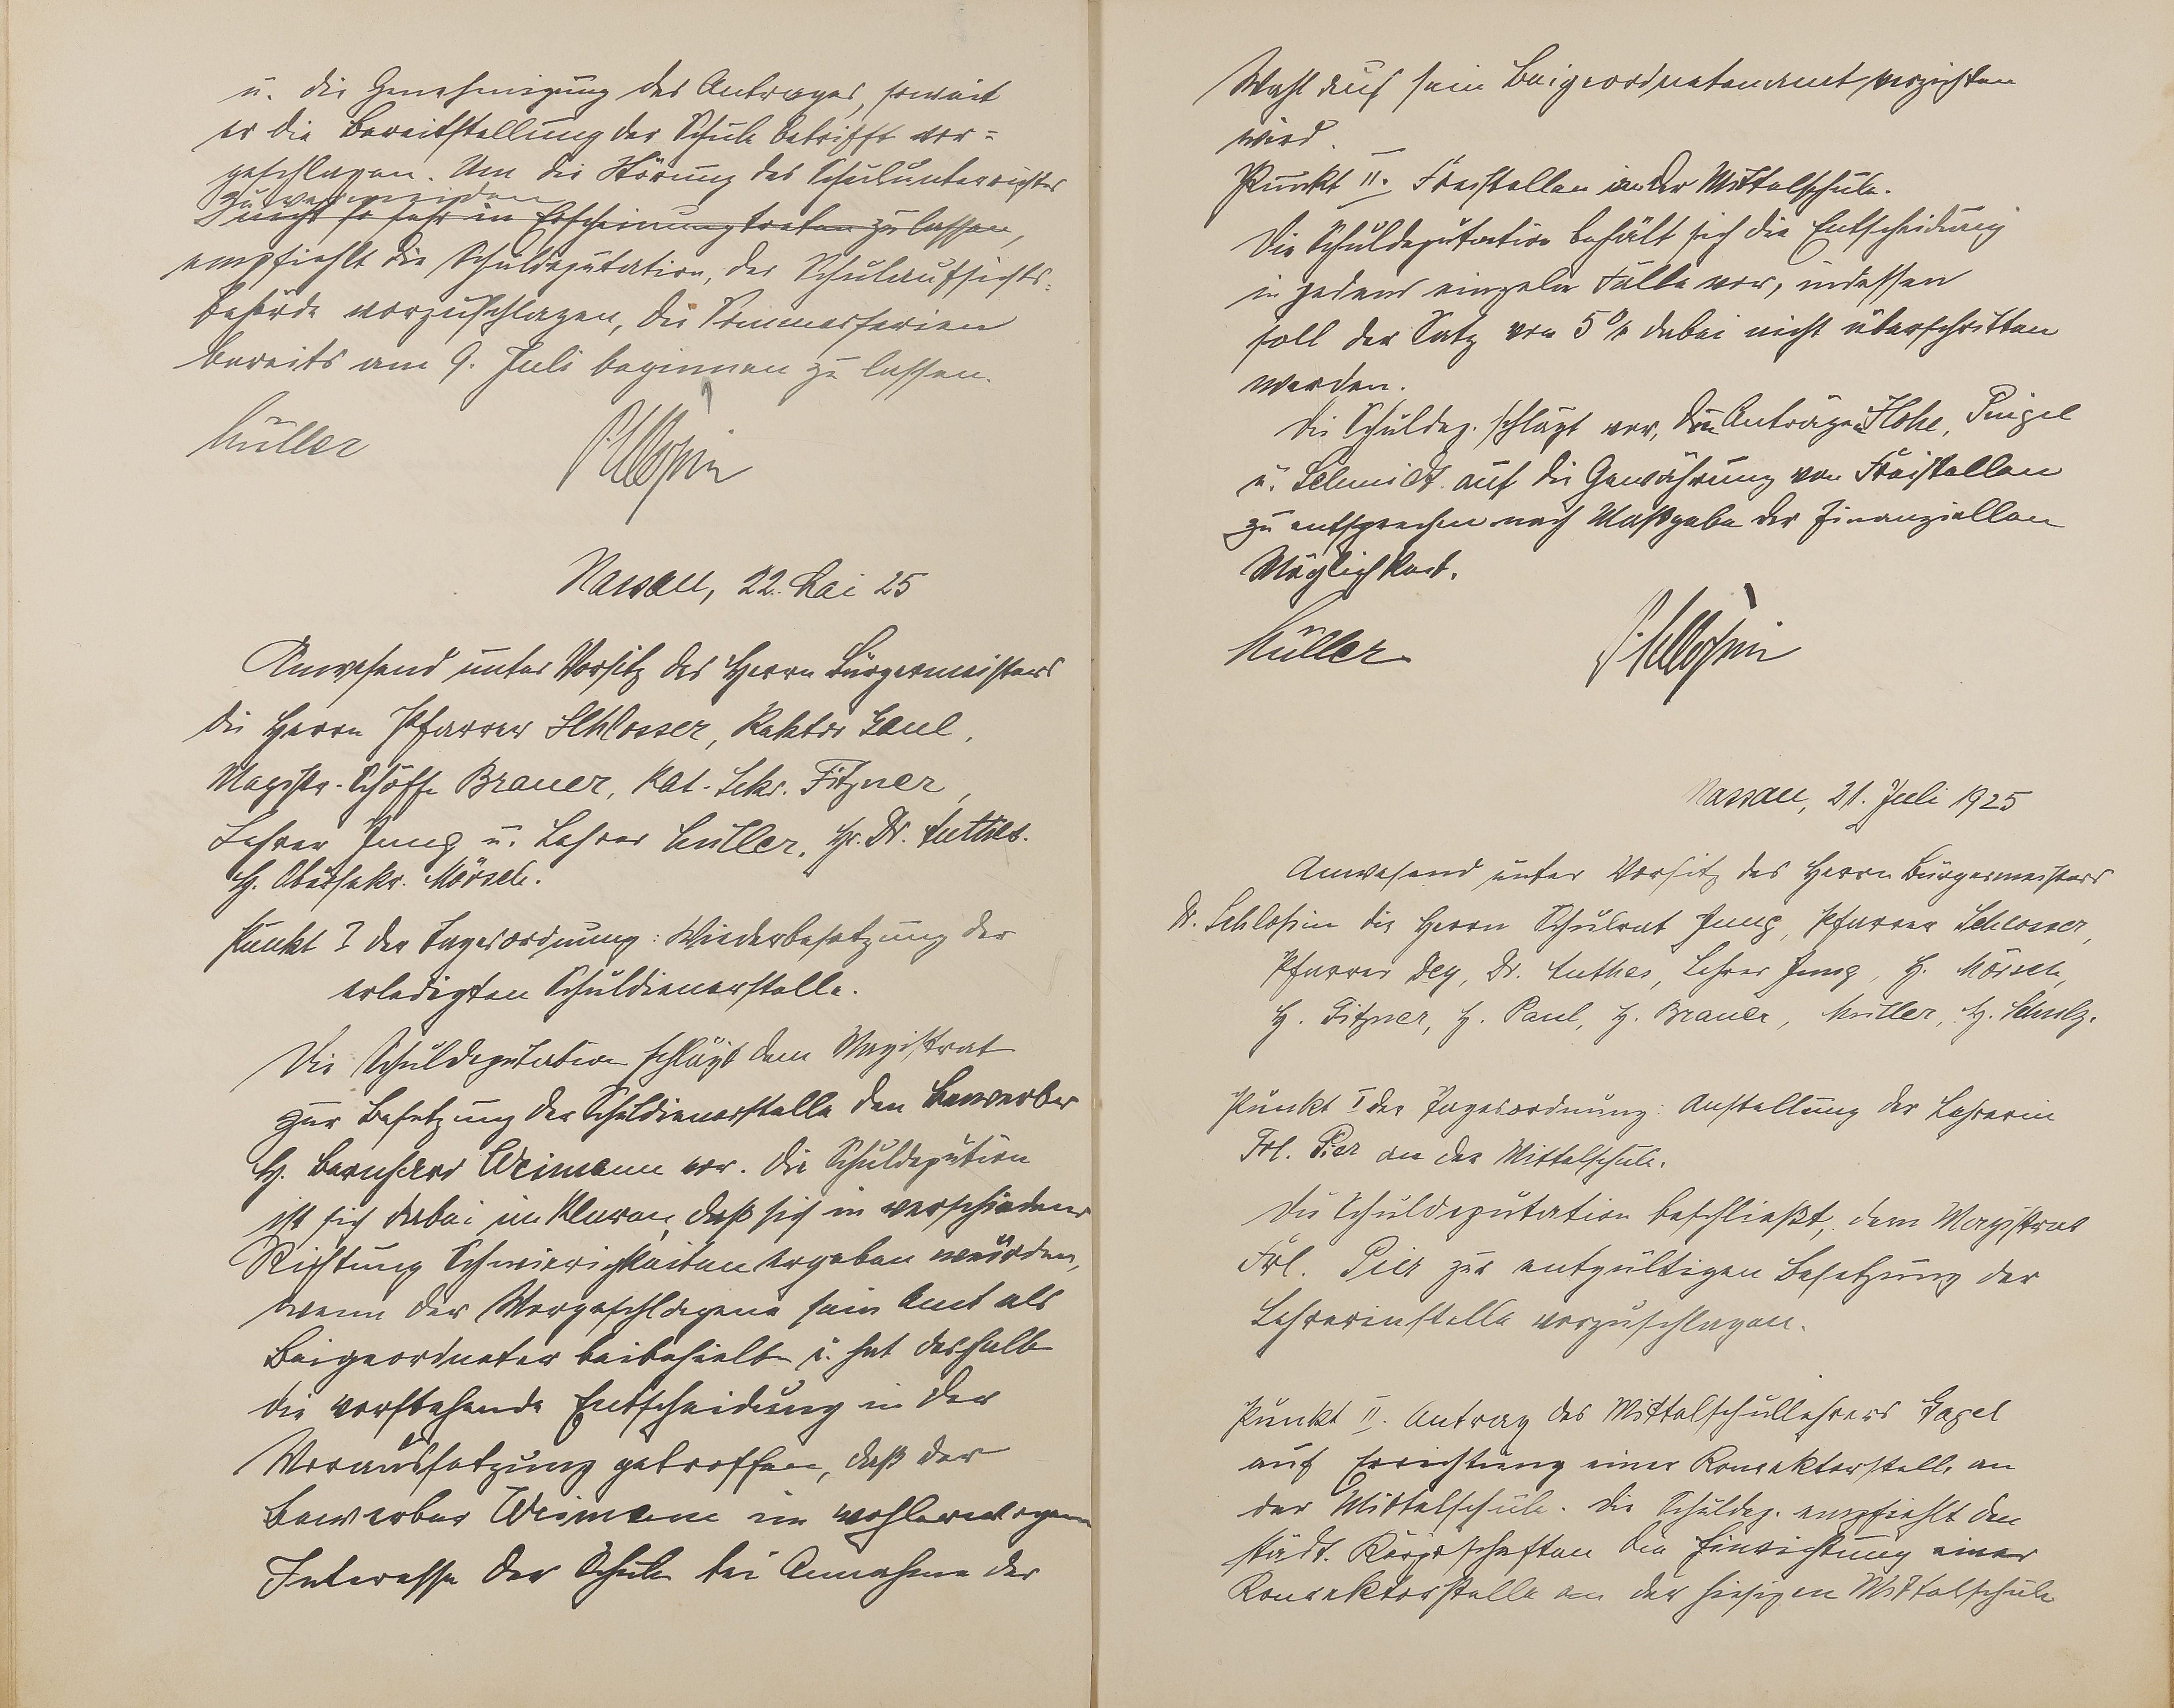 u. die Genehmigung des Antrages, soweit
er die Bereitstellung der Schule betrifft vor=
geschlagen. Um die Störung des Schulunterrichtes
zu vermeiden
nicht so sehr in Erscheinung treten zu lassen,
empfiehlt die Schuldeputation, der Schulaufsichts=
behörde vorzuschlagen, die Sommerferien
bereits am 9. Juli beginnen zu lassen.
Müller
Nassau, 22. Mai 25
Anwesend unter Vorsitz des Herrn Bürgermeisters
die Herren Pfarrer Schlosser, Rektor Gaul,
Magistr.-Schöffe Brauer, Kat.-Sekr. Fitzner,
Lehrer Jung u. Lehrer Müller, Hr. Dr. Anthes.
H. Obersekr. Mörsch.
Punkt I der Tagesordnung: Wiederbesetzung der
erledigten Schuldienerstelle.
Die Schuldeputation schlägt dem Magistrat
zur Besetzung der Schuldienerstelle den Bewerber
H. Bernhard Weimann vor. Die Schuldepution
ist sich dabei im Klaren, daß sich in verschiedener
Richtung Schwierigkeiten ergeben würden,
wenn der Vorgeschlagene sein Amt als
Beigeordneter beibehielte u. hat deshalb
die vorstehende Entscheidung in der
Voraussetzung getroffen, daß der
Bewerber Weimann im wohlerwogenen
Interesse der Schule bei Annahme der
Wahl auf sein Beigeordnetenamt verzichten
wird.
Punkt II. Freistellen an der Mittelschule.
Die Schuldeputation behält sich die Entscheidung
in jedem einzeln Falle vor, indessen
soll der Satz von 5 % dabei nicht überschritten
werden.
Die Schuldep. schlägt vor, den Anträgen Hohe, Pingel
u. Schmidt auf die Gewährung von Freistellen
zu entsprechen nach Maßgabe der finanziellen
Möglichkeit.
Müller
Nassau, 21. Juli 1925
Anwesend unter Vorsitz des Herrn Bürgermeisters
Dr. Schlosin die Herren Schulrat Jung, Pfarrer Schlosser,
Pfarrer Dey, Dr. Anthes, Lehrer Jung, H. Mörsch,
H. Fitzner, H. Paul, H. Brauer, Müller, H. Schulz.
Punkt I der Tagesordnung: Anstellung der Lehrerin
Frl. Pier an der Mittelschule.
Die Schuldeputation beschließt, dem Magistrat
Frl. Pier zur entgültigen Besetzung der
Lehrerinstelle vorzuschlagen.
Punkt II. Antrag des Mittelschullehrers Gagel
auf Errichtung einer Konrektorstelle an
der Mittelschule. Die Schuldep. empfiehlt den
städt. Körperschaften die Einrichtung einer
Konrektorstelle an der hiesigen Mittelschule